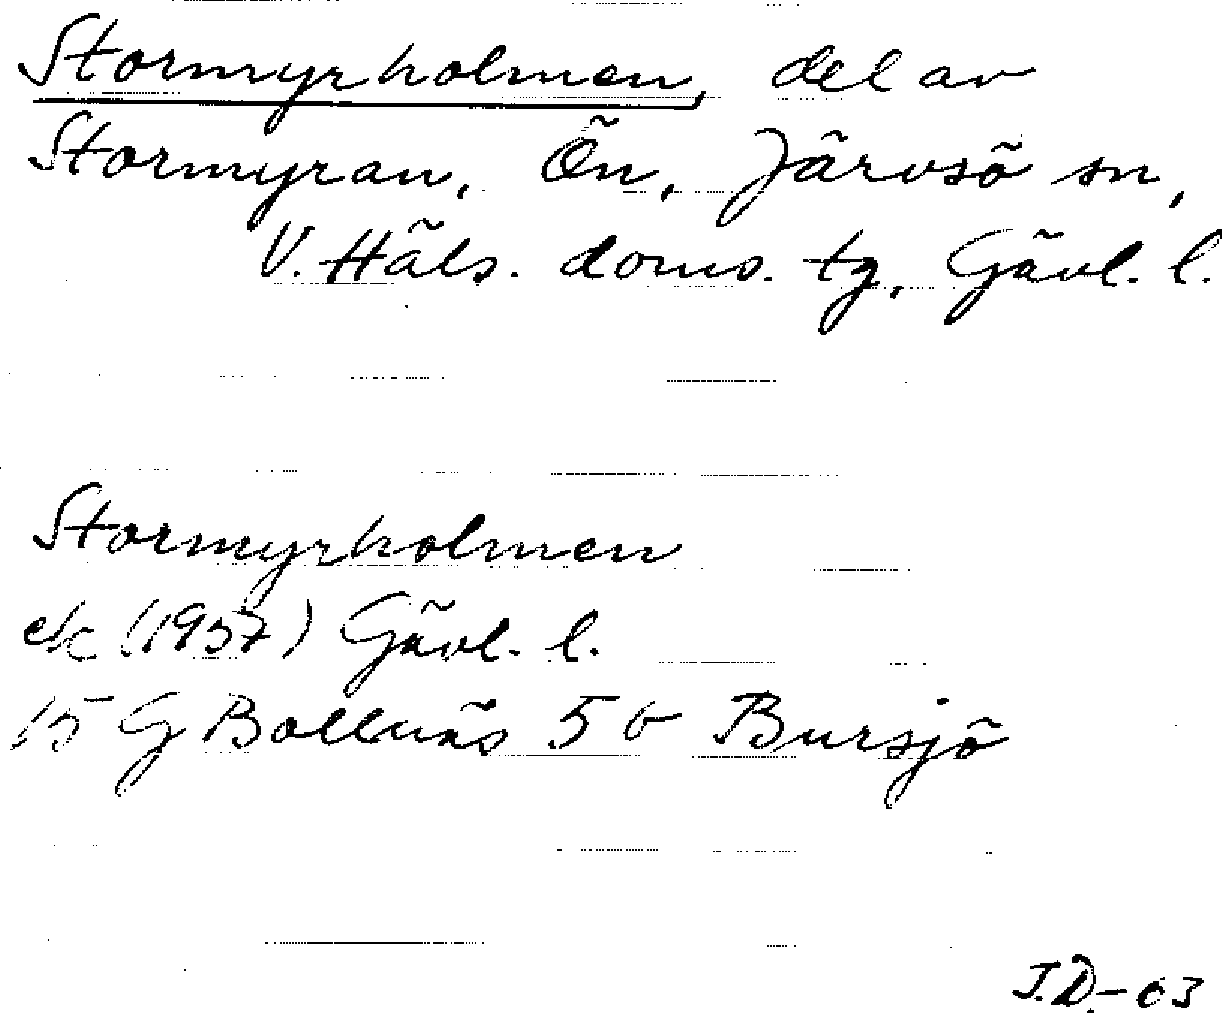 Stormyrholmen, del av
Stormyran, Ön, Järvsö sn,
V. Häls. doms. tg, Gävl. l.
Stormyrholmen
ek (1957) Gävl. l.
15 G Bollnäs 5 b Bursjö
J.D.-63